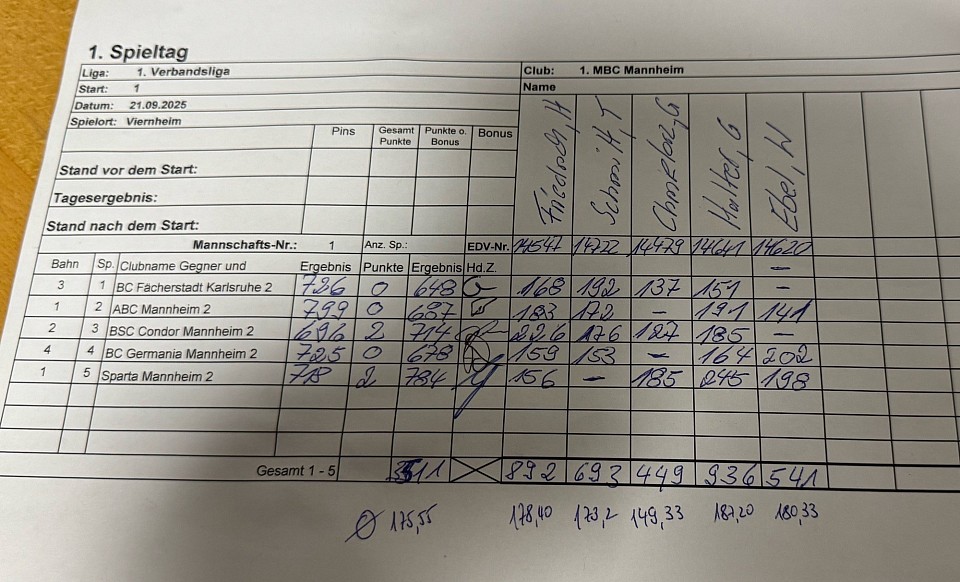 1. Spieltag
Liga: 1. Verbandsliga Club: 1. MBC Mannheim
Start: 1 Name
Datum: 21.09.2025
Spielort: Viernheim
Pins Gesamt Punkte Punkte o. Bonus Bonus
Friedrich, H Schmitt, T G G Ebel, W
Stand vor dem Start:
Tagesergebnis:
Stand nach dem Start:
Mannschafts-Nr.: 1 Anz. Sp.: EDV-Nr. 14547 14722 14479 14641 14620
Bahn Sp. Clubname Gegner und Ergebnis Punkte Ergebnis Hd.Z. –
3 1 BC Fächerstadt Karlsruhe 2 726 0 648 168 192 137 151 –
1 2 ABC Mannheim 2 799 0 687 183 172 – 191 141
2 3 BSC Condor Mannheim 2 696 2 714 226 176 127 185 –
4 4 BC Germania Mannheim 2 725 0 678 159 153 – 164 202
1 5 Sparta Mannheim 2 718 2 784 156 – 185 245 198
Gesamt 1 - 5 3511 892 693 449 936 541
Ø 175,55 178,40 173,2 149,33 187,20 180,33